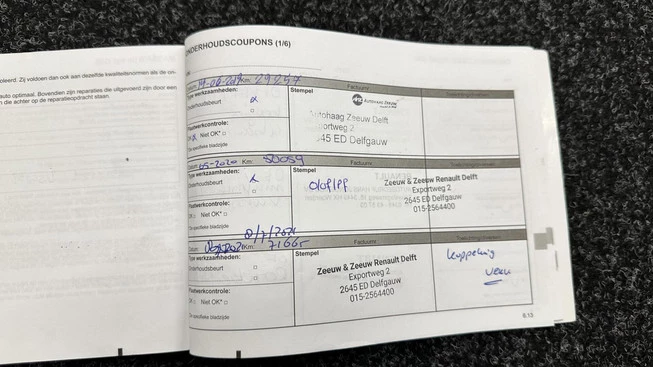 oleerd. Zij voldoen dan ook aan dezelfde kwaliteitsnormen als de on-
auto optimaal. Bovendien zijn reparaties die uitgevoerd zijn door een
die achter op de reparatieopdracht staan.
ONDERHOUDSCOUPONS (1/6)
Km: 29257
Factuurnr.
Type werkzaamheden:
Stempel
Onderhoudsbeurt
Autohaag Zeeuw
Autohaag Zeeuw Delft
Exportweg 2
45 ED Delfgauw
Plaatwerkcontrole:
OK Niet OK*
*Zie specifieke bladzijde
Datum: 05-2020 Km: 50054
Factuurnr.
Type werkzaamheden:
Stempel
Onderhoudsbeurt
Olof/PF
Zeeuw & Zeeuw Renault Delft
Exportweg 2
2645 ED Delfgauw
015-2564400
Plaatwerkcontrole:
OK Niet OK*
*Zie specifieke bladzijde
8/7/2021
Datum: Km: 71665
Factuurnr.
Type werkzaamheden:
Stempel
Onderhoudsbeurt
Zeeuw & Zeeuw Renault Delft
Exportweg 2
2645 ED Delfgauw
015-2564400
koppeling
verv
Plaatwerkcontrole:
OK Niet OK*
*Zie specifieke bladzijde
6.13